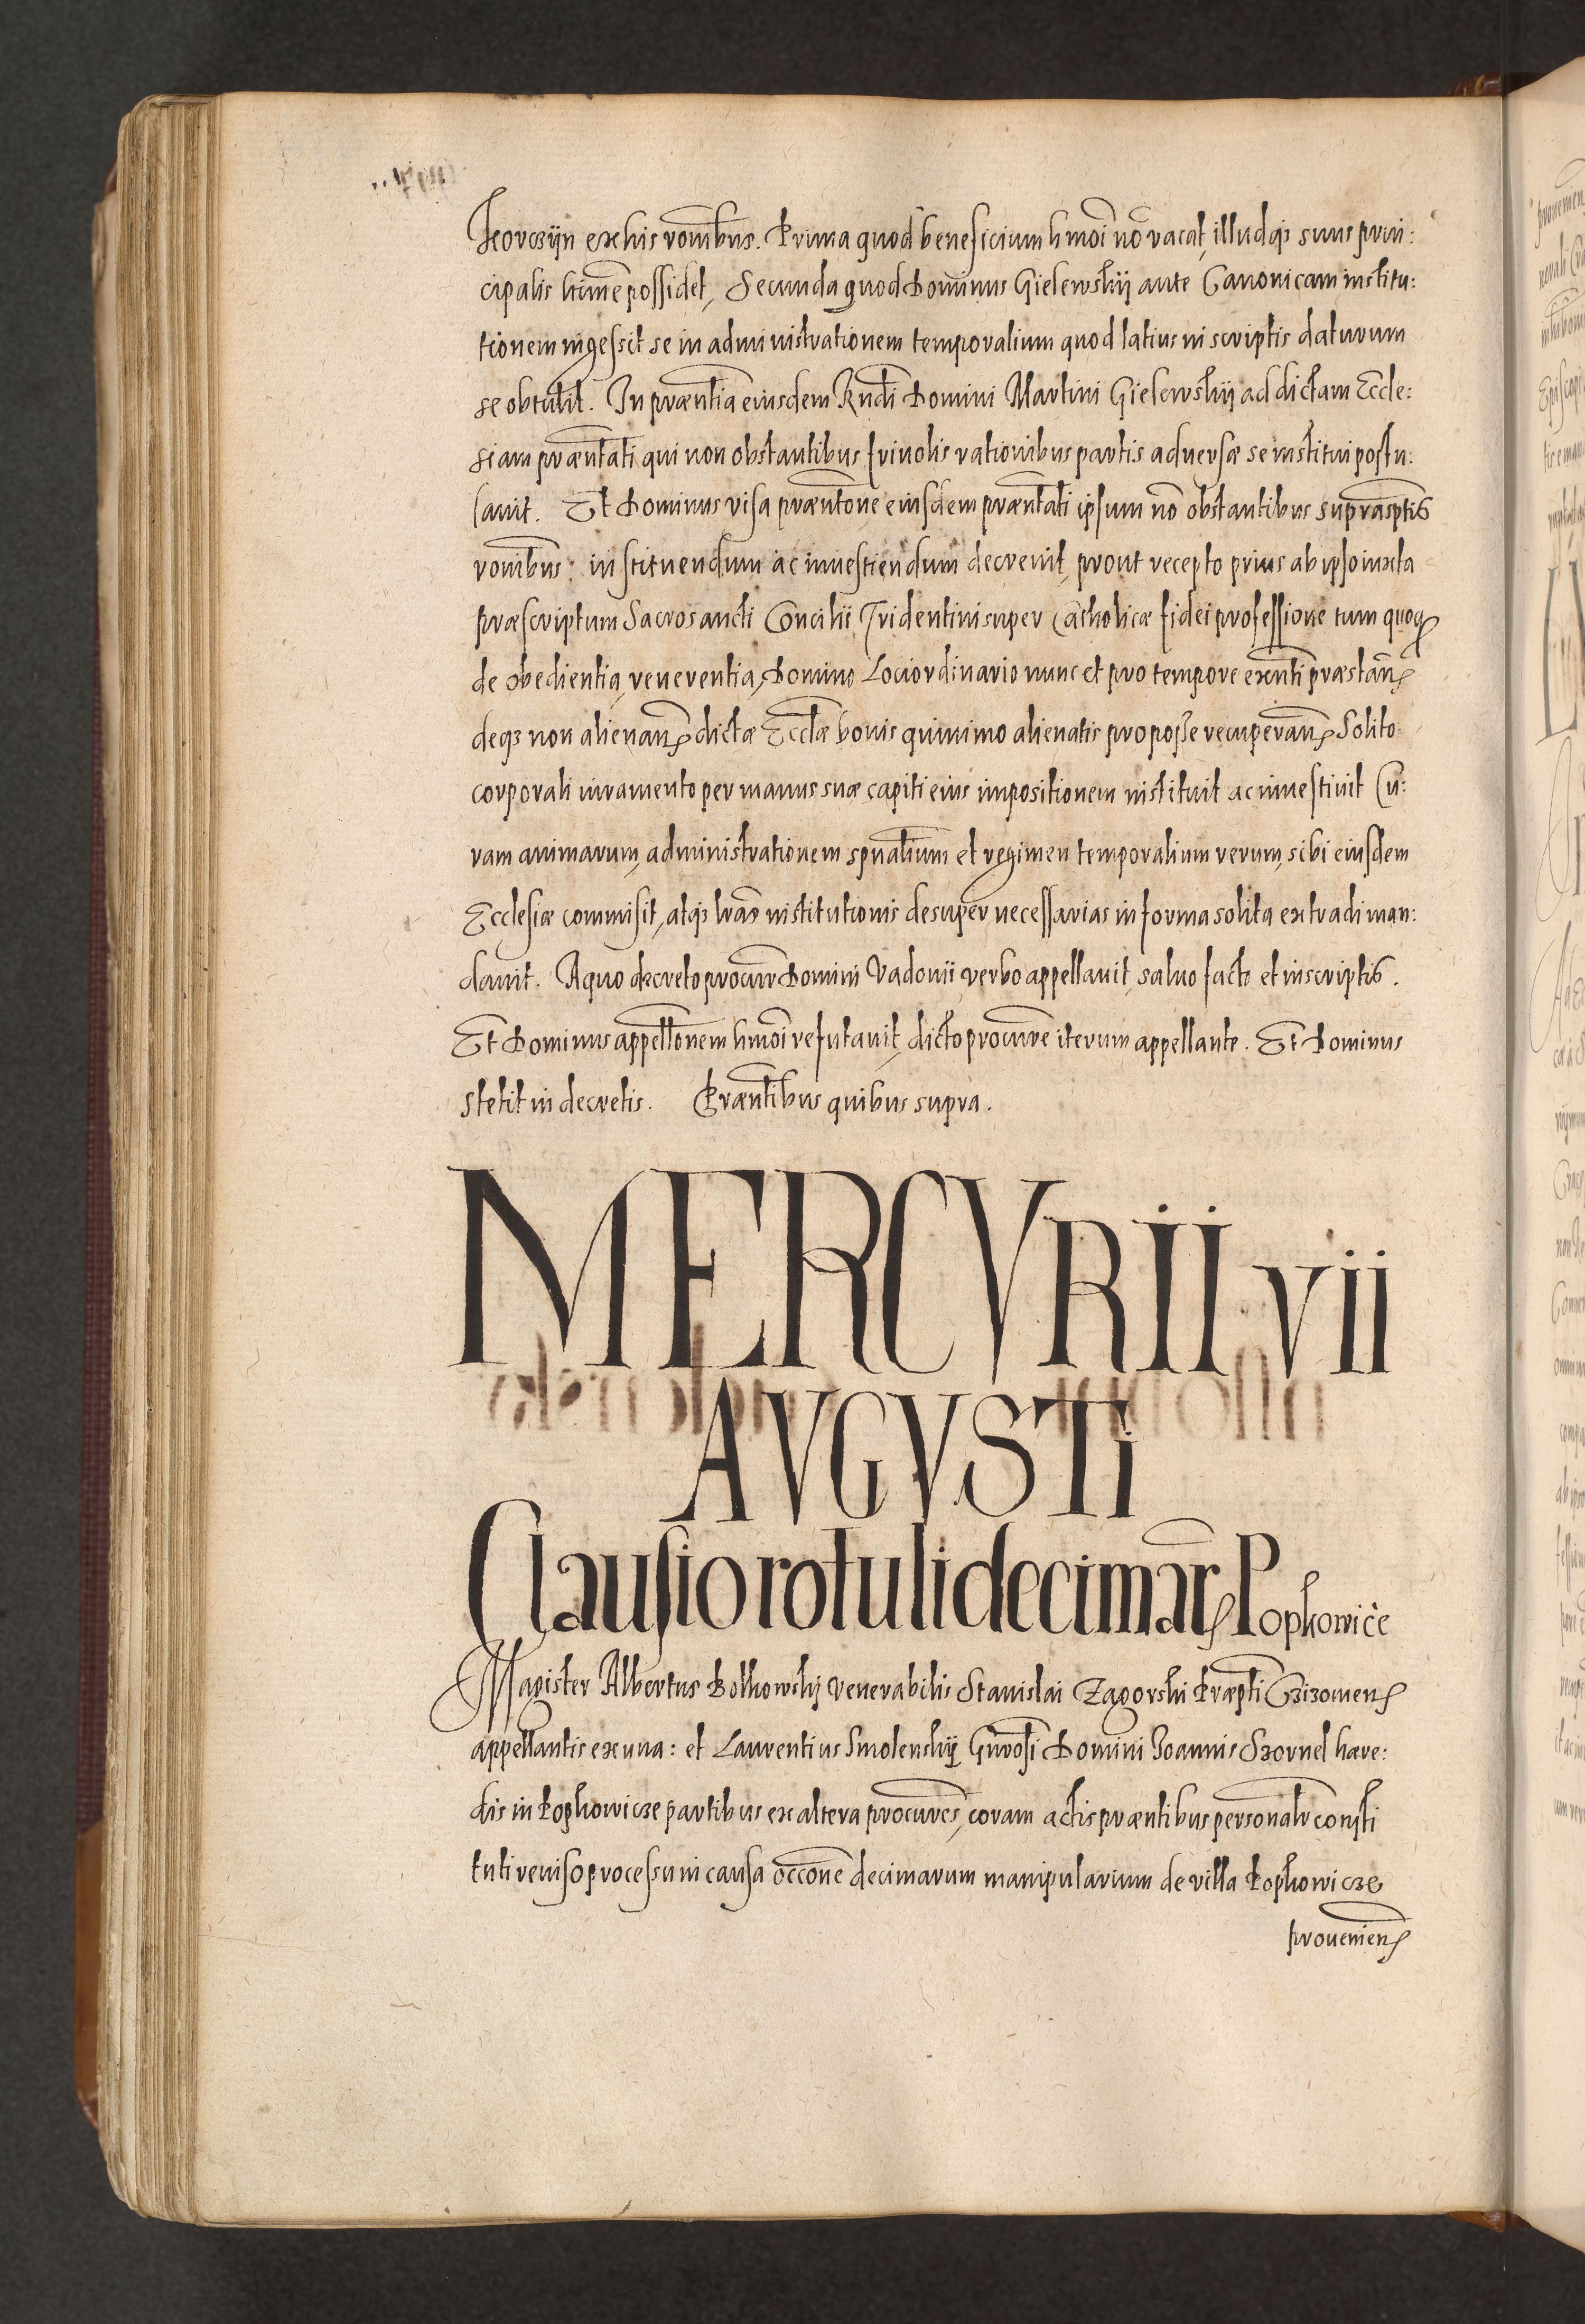 Korczÿn ex his ronibus. Prima quod beneficium hmoi nõ vacat, illudqȝ suus prin:
cipalis ltime possidet, Secunda quod Dominus Gielewskÿ ante Canonicam institu:
tionem ingessit se in administrationem temporalium quod latius in scriptis daturum
se obtulit. In præntia eiusdem Rndi Domini Martini Gielewskÿ ad dictam Eccle:
siam præntati qui non obstantibus friuolis rationibus partis aduersæ se institui postu:
lauit. Et Dominus visa præntone eiusdem præntati ipsum nõ obstantibus suprasptis
ronibus: instituendum ac inuestiendum decreuit, prout recepto prius ab ipso iuxta
præscriptum Sacrosancti Concilii Tridentini super Catholicæ fidei professione tum quoqȝ
de obedientia, reuerentia, Domino Loci ordinario nunc et pro tempore exnti præstanꝝ
deqȝ non alienanꝝ dictæ Ecclæ bonis quinimo alienatis pro posse recuperanꝝ Solito
corporali iuramento per manus suæ capiti eius impositionem instituit ac inuestiuit Cu:
ram animarum, administrationem spualium et regimen temporalium rerum, sibi eiusdem
Ecclesiæ commisit, atqȝ lras institutionis desuper necessarias in forma solita extradi man:
dauit. A quo decreto procur Domini Vadouii verbo appellauit, saluo facto et in scriptis.
Et Dominus appellonem hmoi refutauit, dicto procure iterum appellante. Et Dominus
stetit in decretis. Præntibus quibus supra.
MERCVRII vii
AVGVSTi
Clausio rotuli decimarꝝ Popkowice
Magister Albertus Bolkowskj venerabilis Stanislai Zagorski Præpti Gzizomenꝭ
appellantis ex una: et Laurentius Smolenskÿ Gnrosi Domini Joannis Szornel hære:
dis in Popkowicze partibus ex altera procures, coram actis præntibus personalr consti
tuti reuiso processu in causa occone decimarum manipularium de villa Popkowicze
prouenienꝭ